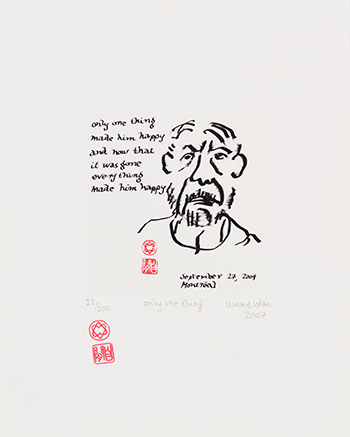 only one thing
made him happy
and now that
it was gone
everything
made him happy
September 27, 2009
Montréal
22/200
only one thing
2009